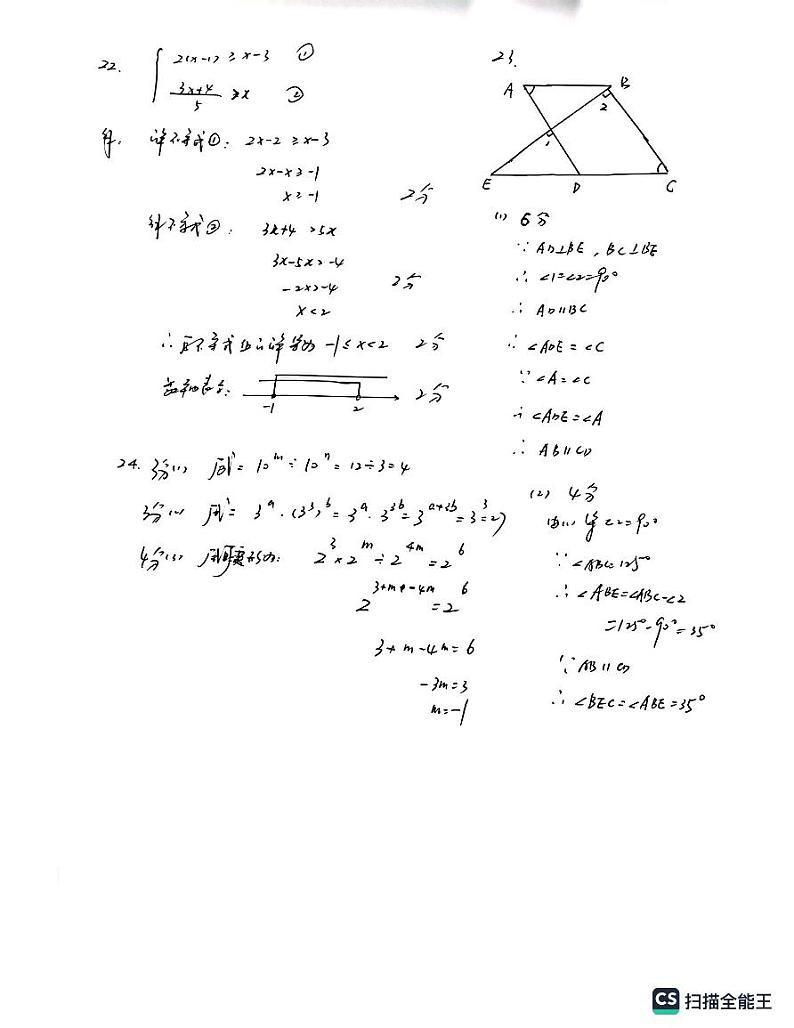 22. { 2(x-1) ≥ x-3 ①
3x+4/5 > x ②
解: 解不等式①: 2x-2 ≥ x-3
2x-x ≥ -1
x ≥ -1 2分
解不等式②: 3x+4 >5x
3x-5x>-4
-2x>-4
x<2 2分
∴ 原不等式组的解集为 -1≤x<2 2分
-1 2 2分
24. 3分(1) 原式= 10^m÷10^n=12÷3=4
3分(2) 原式= 3^a·(3^3)^b=3^a·3^3b=3^a+3b=3^3=27
4分(3) 原式变形为: 2^3×2^m÷2^4m=2^6
2^3+m-4m=2^6
3+m-4m=6
-3m=3
m=-1
23.
A B
1 2
E D C
(1) 6分
∵ AD⊥BE, BC⊥BE
∴ ∠1=∠2=90°
∴ AD∥BC
∴ ∠ADE=∠C
∵ ∠A=∠C
∴ ∠ADE=∠A
∴ AB∥CD
(2) 4分
由(1)得∠2=90°
∵ ∠ABC=125°
∴ ∠ABE=∠ABC-∠2
=125°-90°=35°
∵ AB∥CD
∴ ∠BEC=∠ABE=35°
CS 扫描全能王